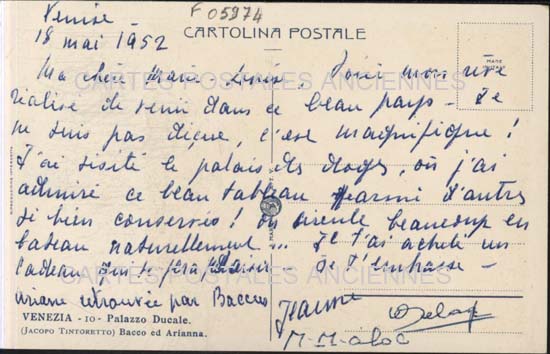 F 05974
Venise
18 mai 1952
CARTOLINA POSTALE
Ma chère Marie-Louise, Voici mon rêve
réalisé de venir dans ce beau pays - Je
ne suis pas déçue, c'est magnifique !
J'ai visité le palais des doges, où j'ai
admiré ce beau tableau parmi d'autres
si bien conservés ! On circule beaucoup en
bateau naturellement... Je t'ai acheté un
cadeau qui te fera plaisir - Je t'embrasse -
Ariane retrouvée par Bacchus
Jeanne
VENEZIA - 10 - Palazzo Ducale.
(JACOPO TINTORETTO) Bacco ed Arianna.
CARTES POSTALES ANCIENNES
CARTES POSTALES ANCIENNES